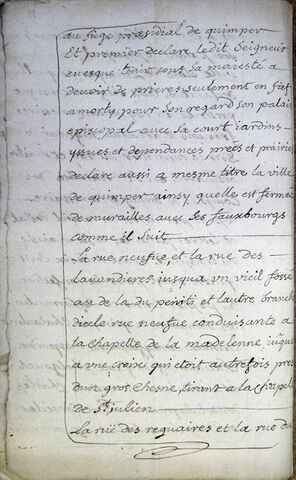 au siege præsidial de quimper
Et premier declare ledit Seigneur
euesque tenir sous sa maiesté a
deuoir de prieres seulement en fief
amorty pour son regard son palais
episcopal auec sa court iardins
yssues et dependances preés et prairie
declare aussi a mesme tiltre la ville
de quimper ainsy quelle est fermée
de murailles auec ses fauxbourgs
comme il suit
La rue neufue et la rue des
lauandieres iusqua vn vieil fosse
au de la du peniti et lautre branche
dicele rue neufue conduisante a
la chapelle de la madelenne iusque
a vne croix qui etoit autrefois pres
dun gros chesne, tirant a la chapelle
de St iulien
La rue des reguaires et la rue du